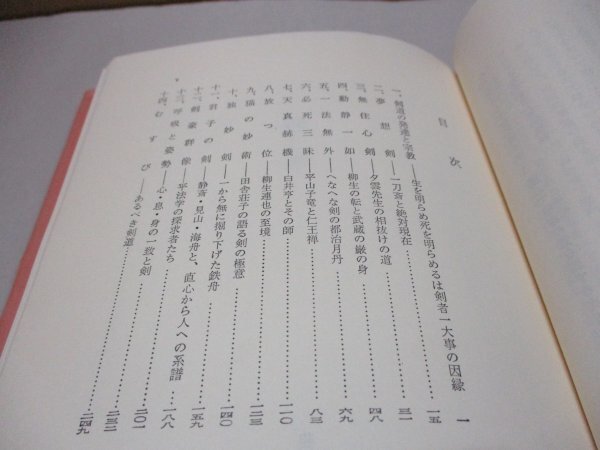 目次
一、剣道の発達と宗教――生を明らめ死を明らめるは剣者一大事の因縁……一
二、夢想剣――一刀斎と絶対現在……一五
三、無住心剣――夕雲先生の相抜けの道……三一
四、動静一如――柳生の転と武蔵の巌の身……四八
五、一法無外――へなへな剣の都治月丹……六九
六、必死三昧――平山子竜と仁王禅……八三
七、天真赫機――白井亨とその師……一一〇
八、放つ位――柳生連也の至境……一二三
九、猫の妙術――田舎荘子の語る剣の極意……一四〇
十、独妙剣――一から無に掘り下げた鉄舟……一五九
十一、君子の剣――静斎・見山・海舟と、直心から人への系譜……一八八
十二、剣豪群像――平法学の探求者たち……二〇一
十三、呼吸と姿勢――心・息・身の一致と剣……二三二
十四、むすび――あるべき剣道……二四九